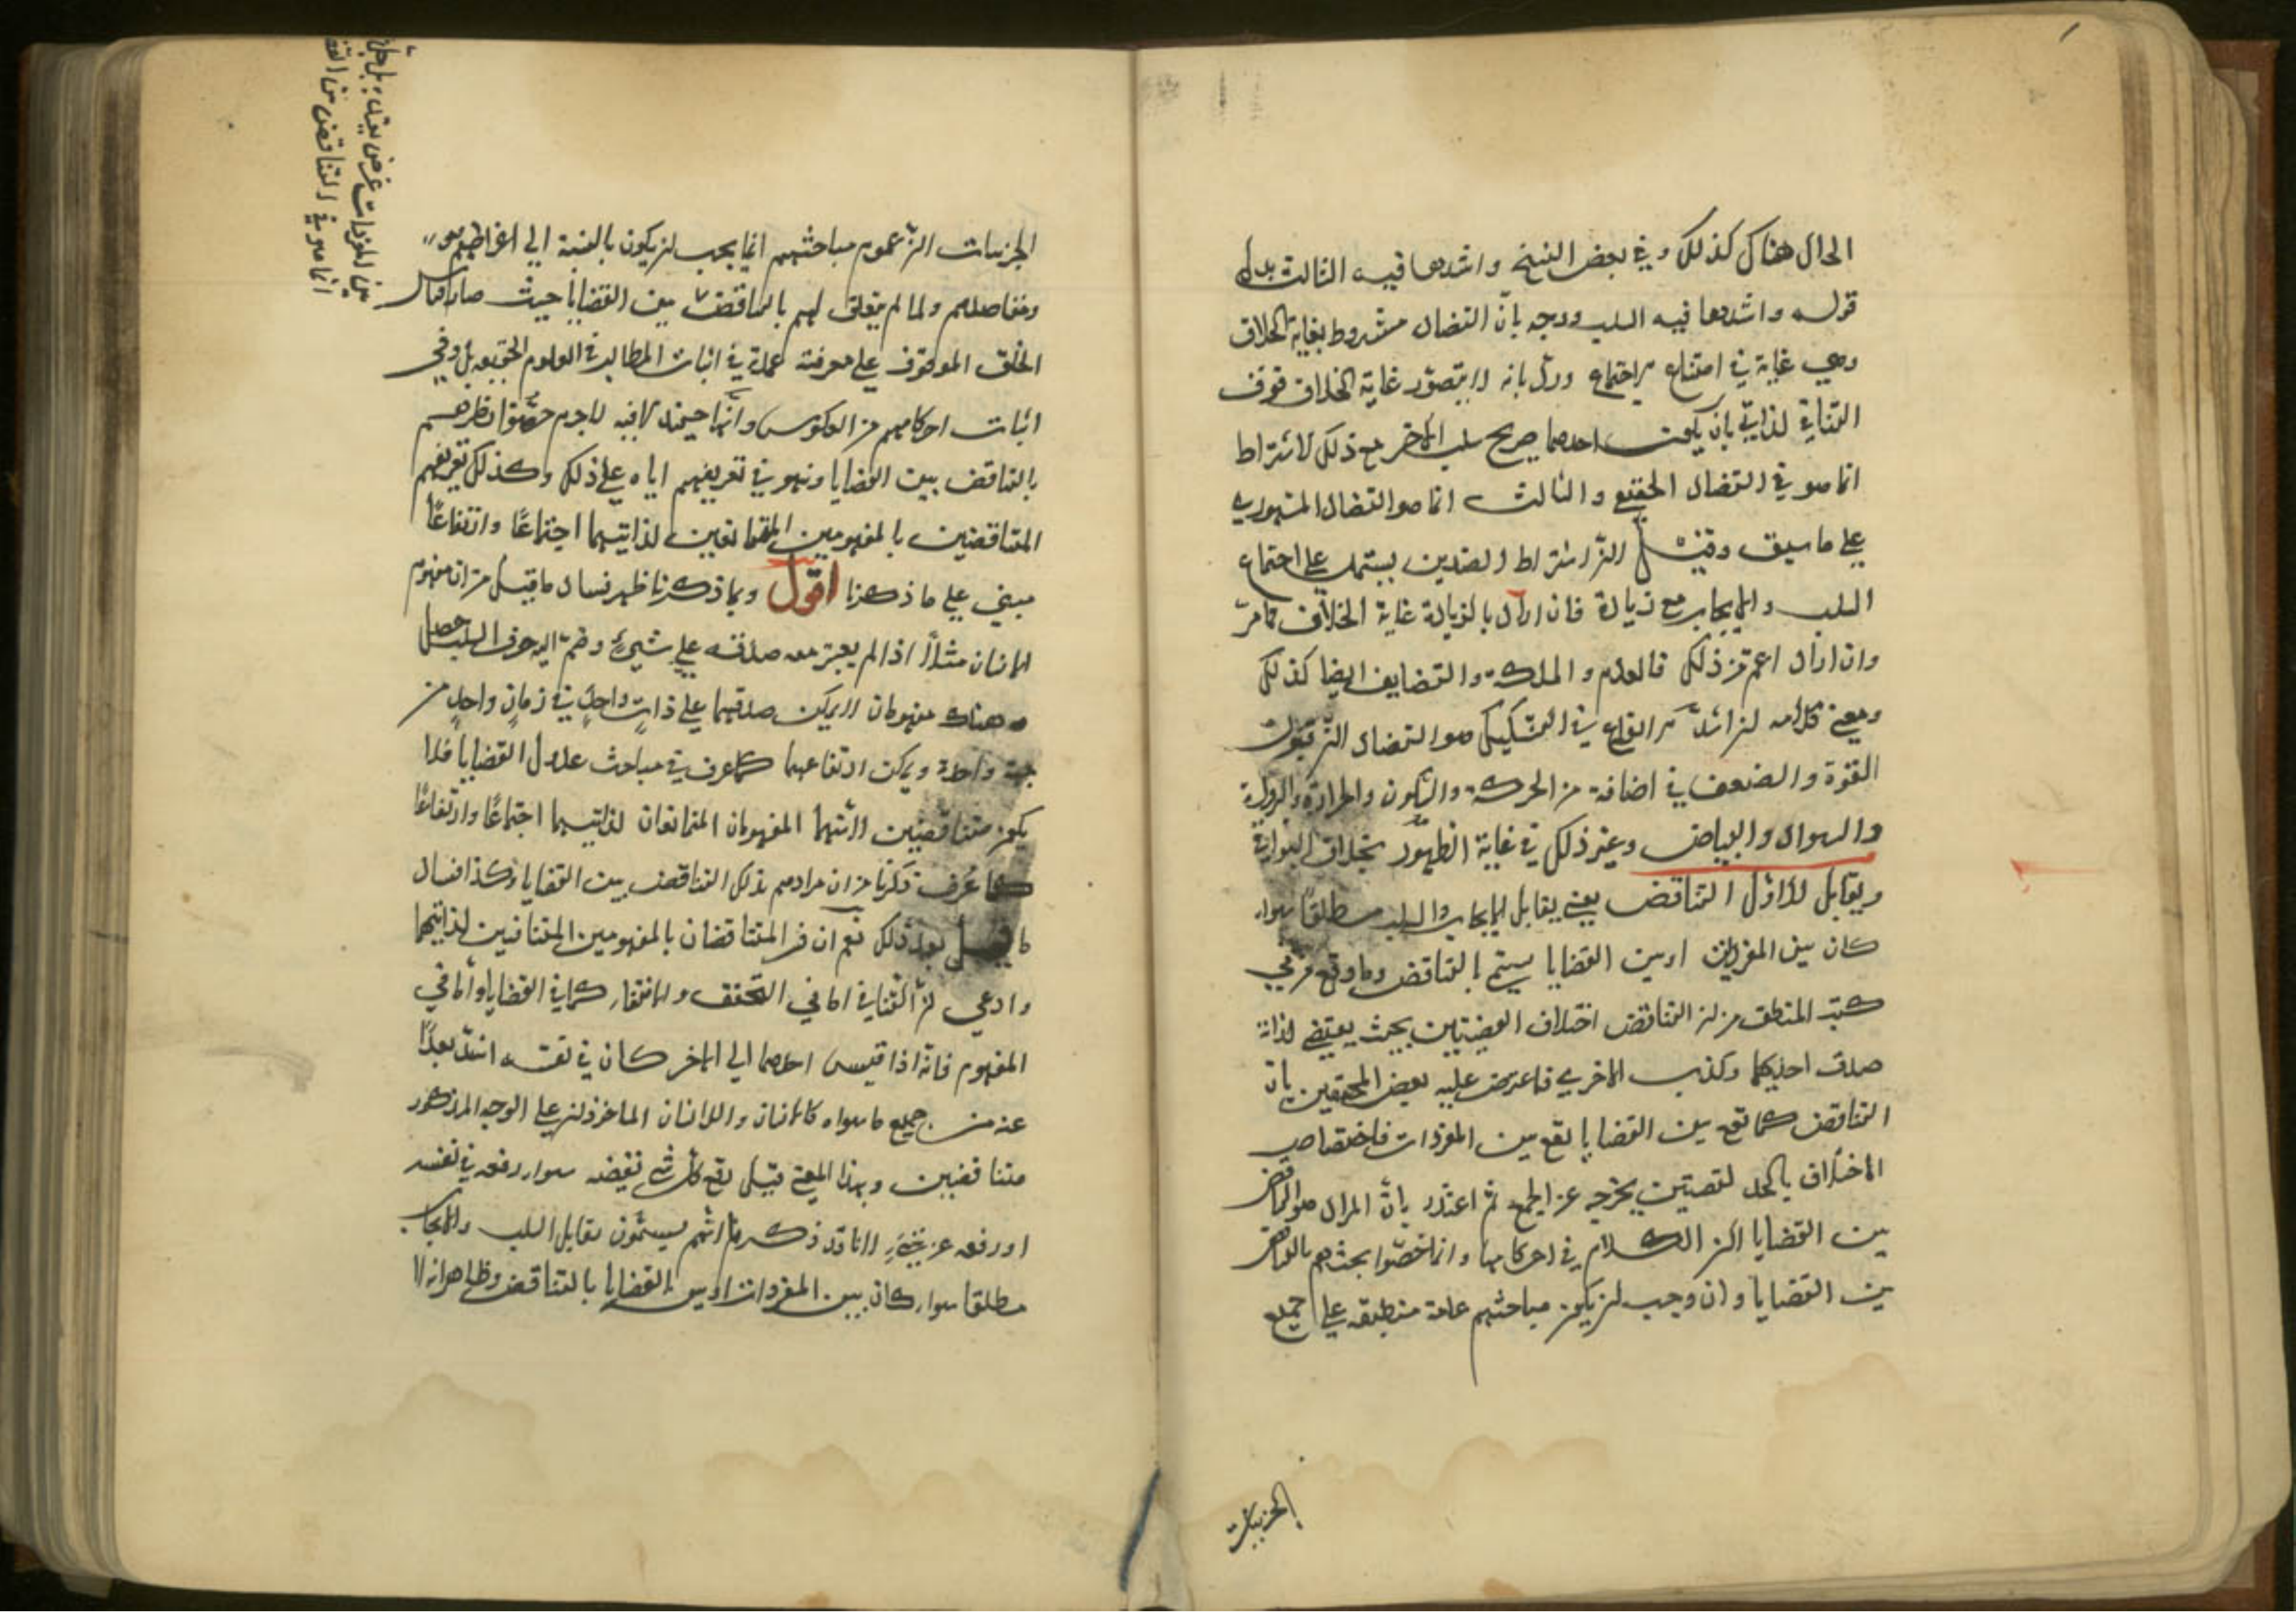 الحال هناك كذلك وفي بعض النسخ واشدها فيه الثالث بدل
قوله واشدها فيه السلب ووجه بأن التضاد مشروط بغاية الخلاف
وهي غاية في امتناع الاجتماع ورد بانه لا يتصور غاية الخلاف فوق
التنافي الذاتي بان يكون احدهما صريح سلب الآخر مع ذلك لاشتراط
انما هو في التضاد الحقيقي والثالث انما هو التضاد المشهوري
على ما سبق وقيل اشتراط الضدين يشتمل على اجتماع
السلب والايجاب مع زيادة فان اراد بالزيادة غاية الخلاف كما مر
وان اراد اعم من ذلك فالعدم والملكة والتضايف ايضا كذلك
ومعنى كلامه ان اشد الانواع في التشكيك هو التضاد
القوة والضعف في اضافة من الحركة والسكون والحرارة والبرودة
والسواد والبياض وغير ذلك في غاية الظهور بخلاف البواقي
ويقابل للاول التناقض يعني يقابل الايجاب والسلب مطلقا سواء
كان بين المفردين او بين القضايا يسمى بالتناقض وما وقع في
كتب المنطق من ان التناقض اختلاف القضيتين بحيث يقتضي لذاته
صدق احديهما وكذب الاخرى فاعترض عليه بعض المحققين بان
التناقض كما تقع بين القضايا يقع بين المفردات فاختصاص
الاختلاف بالحد لقضيتين يخرجه عن الجمع ثم اعتذر بان المراد هو التناقض
بين القضايا اذ الكلام في احكامها وانما خصوا بحثهم بالتناقض
بين القضايا وان وجب ان يكون مباحثهم عامة منطبقة على جميع
الجزئيات
الجزئيات لان عموم مباحثهم انما يجب ان يكون بالنسبة الى اغراضهم
ومقاصدهم ولما لم يتعلق لهم بالتناقض بين القضايا حيث صار قياس
الخلف الموقوف على معرفته عمدة في اثبات المطالب في العلوم الحقيقية بل وفي
اثبات احكامهم من العكوس لا جرم خصوا نظرهم
بالتناقض بين القضايا ونبهو في تعريفهم اياه على ذلك وكذلك تعريفهم
المتناقضين بالمفهومين المتمانعين لذاتيهما اجتماعًا وارتفاعًا
مبني على ما ذكرنا اقول وبما ذكرنا ظهر فساد ما قيل من ان مفهوم
الانسان مثلًا اذا لم يعتبر معه صدقه على شيء وضم اليه حرف السلب حصل
هناك مفهومان لا يمكن صدقهما على ذات واحد في زمان واحد من
جهة واحدة ويمكن ارتفاعهما كما عرف في مباحث عدول القضايا فلا
يكون متناقضين لانهما المفهومان المتمانعان لذاتيهما اجتماعًا وارتفاعًا
كما عرف ذكرنا من ان مرادهم بذلك التناقض بين القضايا وكذا فساد
ما قيل بعد ذلك نعم ان فسر المتناقضان بالمفهومين المتنافيين لذاتيهما
وادعي ان التنافي اما في التحقق والانتفاء كما في القضايا واما في
المفهوم فانه اذا قيس احدهما الى الاخر كان في نفسه اشد بعدًا
عنه من جميع ما سواه كالانسان واللاانسان الماخوذين على الوجه المذكور
متناقضين وبهذا المعنى قيل رفع كل شيء نقيضه سواء رفعه في نفسه
او رفعه عن شيء لانا قد ذكرنا انهم يسمون تقابل السلب والايجاب
مطلقا سواء كان بين المفردات او بين القضايا بالتناقض وظاهر انه لا
بين المفردات
انما هو في التناقض بين